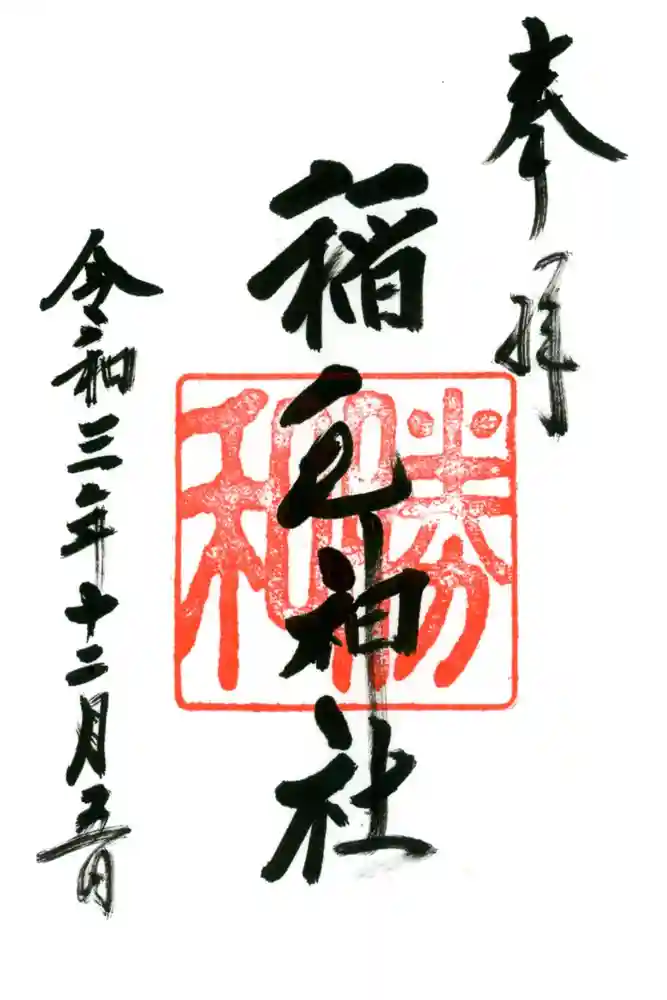 奉拝
稲毛神社
勝和
令和三年十二月五日